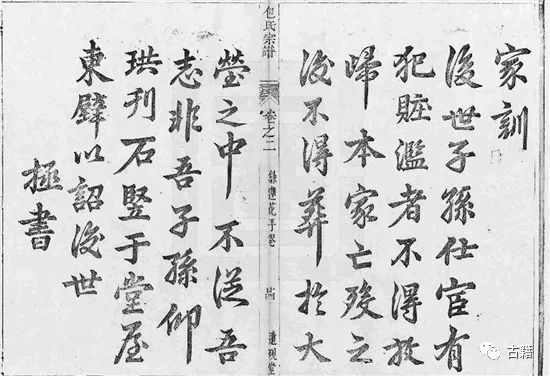 家訓
後世子孫仕宦有
犯賍濫者不得放
歸本家亡歿之
後不得葬於大
包氏宗譜
卷之二
塋之中不從吾
志非吾子孫仰
珙刊石豎于堂屋
東壁以詔後世
拯書
古籍